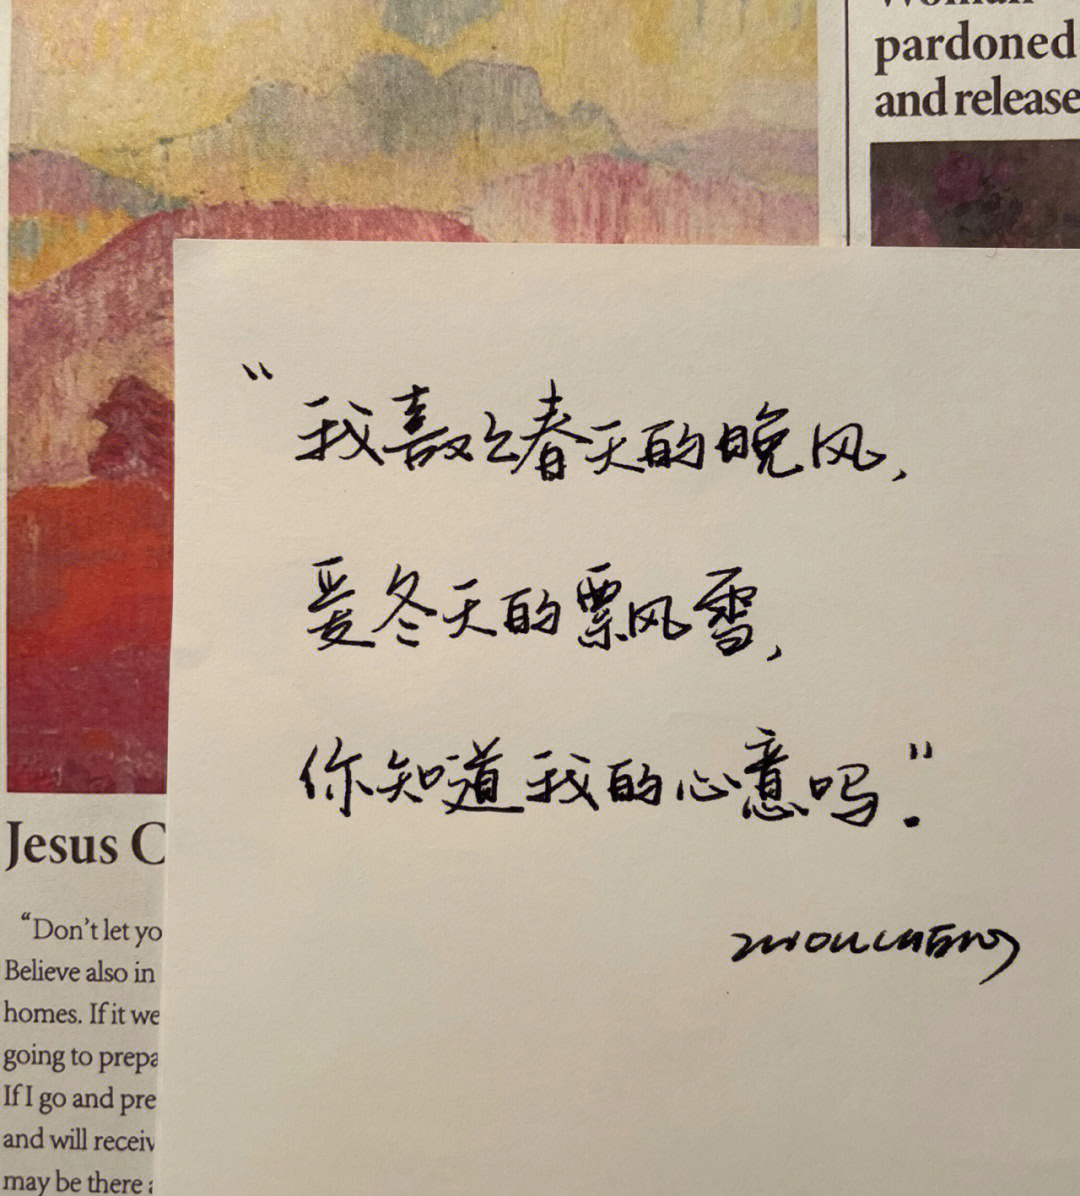 Woman
pardoned
and release
“我喜欢春天的晚风,
爱冬天的飘雪,
你知道我的心意吗.”
ZHOUCHENG
Jesus C
“Don’t let yo
Believe also in
homes. If it we
going to prepa
If I go and pre
and will receiv
may be there